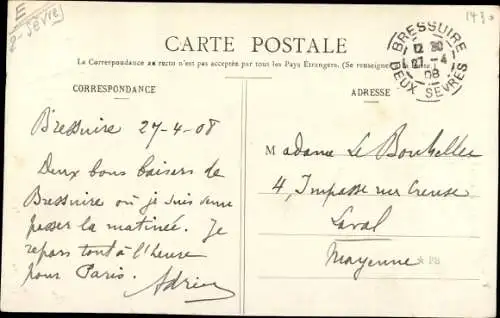 E
2-Sèvre
1430
CARTE POSTALE
La Correspondance au recto n'est pas acceptée par tous les Pays Étrangers. (Se renseigner à la Poste.)
BRESSUIRE
12 30
27 - 4
08
DEUX SÈVRES
CORRESPONDANCE
Bressuire 27-4-08
Deux bons baisers de
Bressuire où je suis venu
passer la matinée. Je
repars tout à l'heure
pour Paris.
Adrien
ADRESSE
Madame Le Bouteiller
4, Impasse rue Creuse
Laval
Mayenne